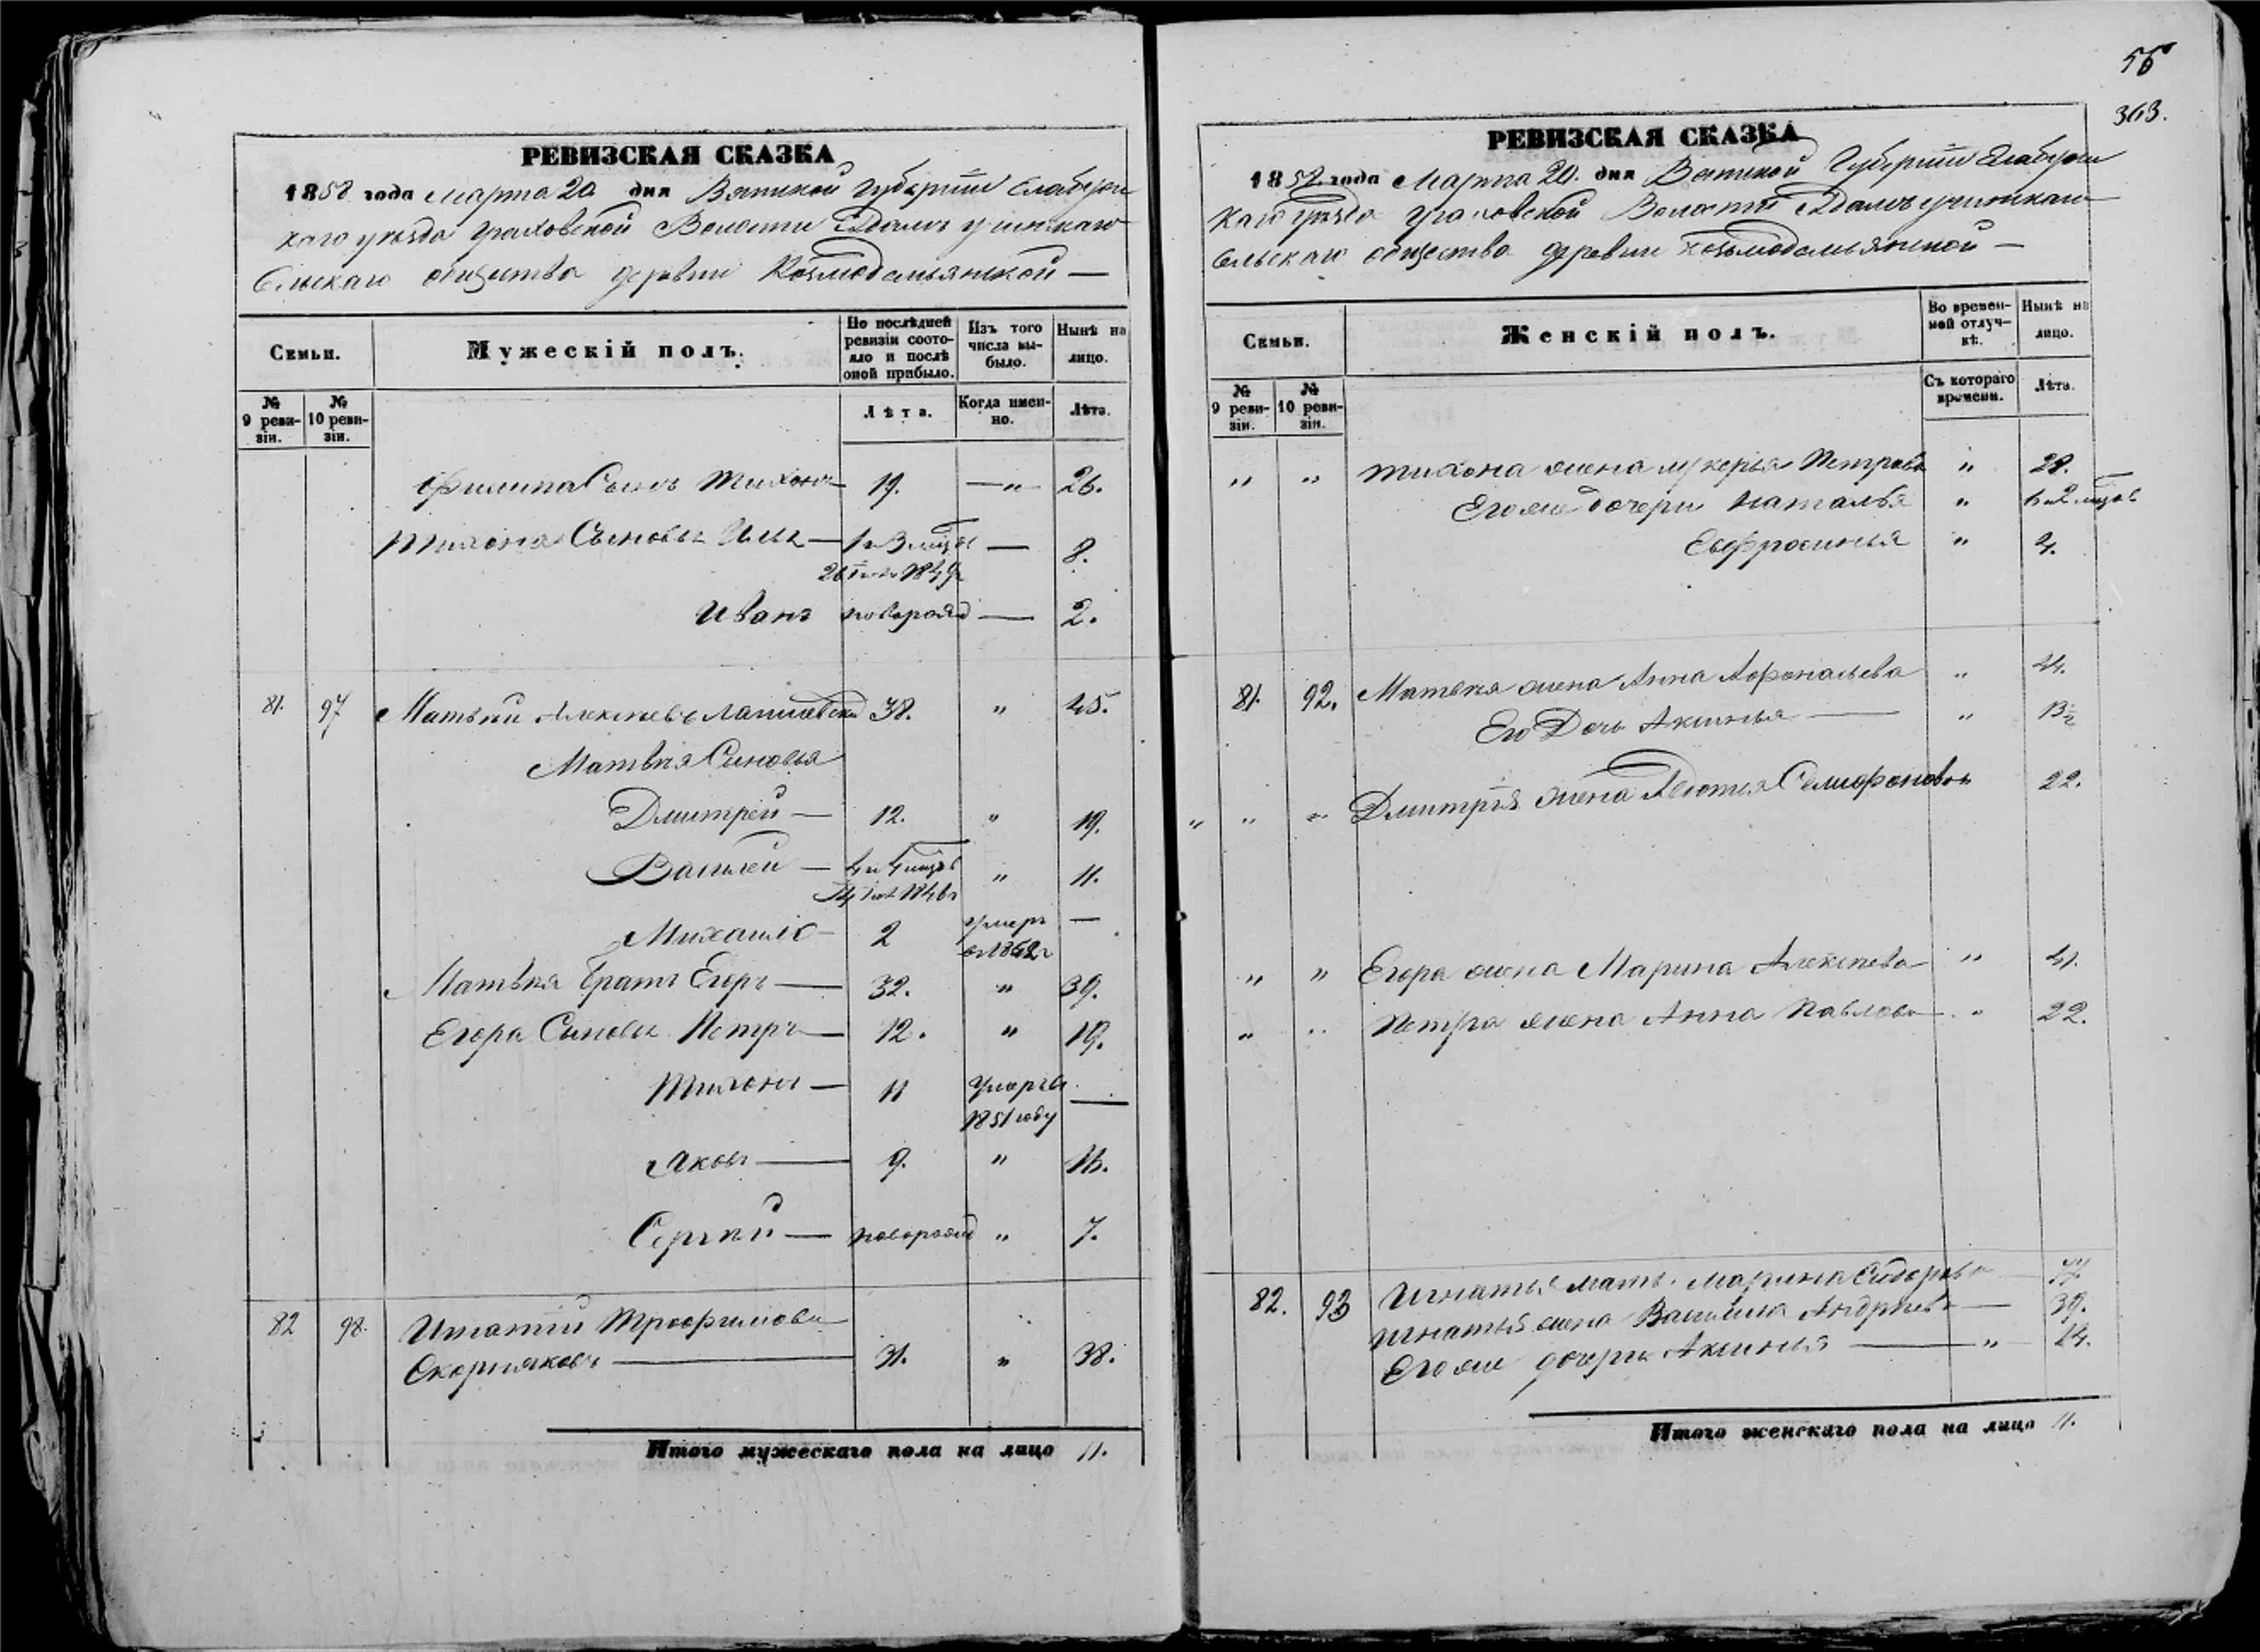 РЕВИЗСКАЯ СКАЗКА
1858 года Марта 20 дня Вятской Губернiи Елабуж
скаго уѣзда Граховской Волости
Сельскаго общества деревни Козмодемьянской —
Семьи.
Мужескiй полъ.
По послѣдней ревизiи состояло и послѣ оной прибыло.
Изъ того числа выбыло.
Нынѣ на лицо.
№ 9 ревизiи.
№ 10 ревизiи.
Лѣта.
Когда именно.
Лѣта.
Филипа Сынъ Тихонъ 19. — " — 26.
Тихона Сыновья — — 8.
Иванъ новорожд — 2.
81. 97 Матвѣй Алексѣевъ 38. " 45.
Матвѣя Сыновья
Дмитрей — 12. " 19.
Василей — 4 и 4 мѣсяц " 11.
Михаило — 2 умеръ —
Матвѣя Братъ Егоръ — 32. " 39.
Егора Сыновья Петръ — 12. " 19.
Тихонъ — 11 Умеръ въ —
1851 году
Яковъ — 9. " 16.
Сергѣй — новорожд " 7.
82 98. Игнатiй Трофимовъ
Скорняковъ — 31. " 38.
Итого мужескаго пола на лицо 11.
56
363.
РЕВИЗСКАЯ СКАЗКА
1858 года Марта 20. дня Вятской Губернiи Елабуж
скаго уѣзда Граховской Волости
Сельскаго общества деревни Козьмодемьянской —
Семьи.
Женскiй полъ.
Во временной отлучкѣ.
Нынѣ на лицо.
№ 9 ревизiи.
№ 10 ревизiи.
Съ котораго времени.
Лѣта.
" " Тихона жена Лукерья Петрова " 28.
Его же дочери Наталья "
Евфросинья "
81. 92. Матвѣя жена Анна Афонасьева "
Его Дочь Аксинья — "
" " " Дмитрiя жена Авдотья 22.
" " Егора жена Марина Алексѣева " 41.
" " Петра жена Анна Павлова " 22.
82. 93 Игнатья мать Марина Сидорова
Игнатья жена Васильиса Андреева — 39.
Его же дочери Аксинья — " 14.
Итого женскаго пола на лицо 11.